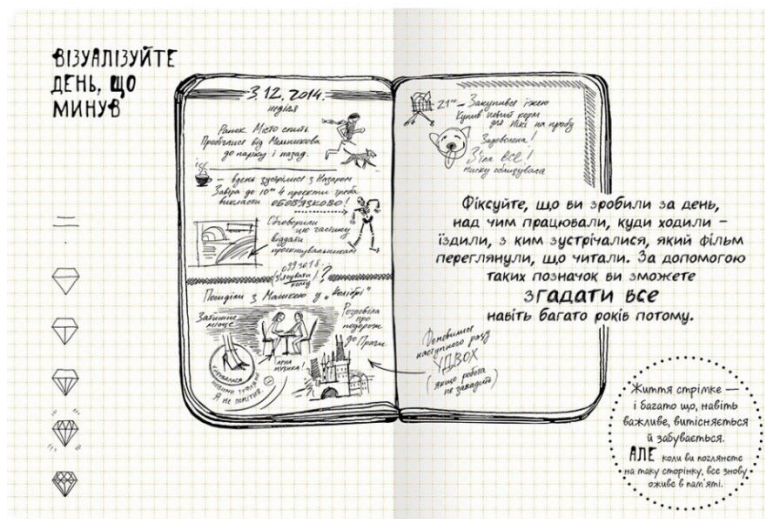 ВІЗУАЛІЗУЙТЕ
ДЕНЬ, ЩО
МИНУВ
3.12.2014.
неділя
Ранок. Місто спить
Пробіглися від Мельникова
до парку і назад.
– вдень зустрілися з Назаром
Завтра до 10⁰⁰ 4 проекти треба
викласти ОБОВ'ЯЗКОВО!
Обговорили
цю частину
проектувальникам
Посиділи з Машкою у „Колібрі"
Затишне
місце
Розповіла
про
подорож
до Праги.
Гарна
музика!
новими туфлями
Я не помітив.
21⁰⁰ – Закупився їжею
Купив новий корм
для на пробу
Задоволена!
З'їла ВСЕ!
миску облизувала
Домовилися
наступного разу
УДВОХ
(якщо робота
не завадить)
Фіксуйте, що ви зробили за день,
над чим працювали, куди ходили –
їздили, з ким зустрічалися, який фільм
переглянули, що читали. За допомогою
таких позначок ви зможете
ЗГАДАТИ ВСЕ
навіть багато років потому.
Життя стрімке —
і багато що, навіть
важливе, витісняється
й забувається.
АЛЕ коли ви поглянете
на таку сторінку, все знову
оживе в пам'яті.